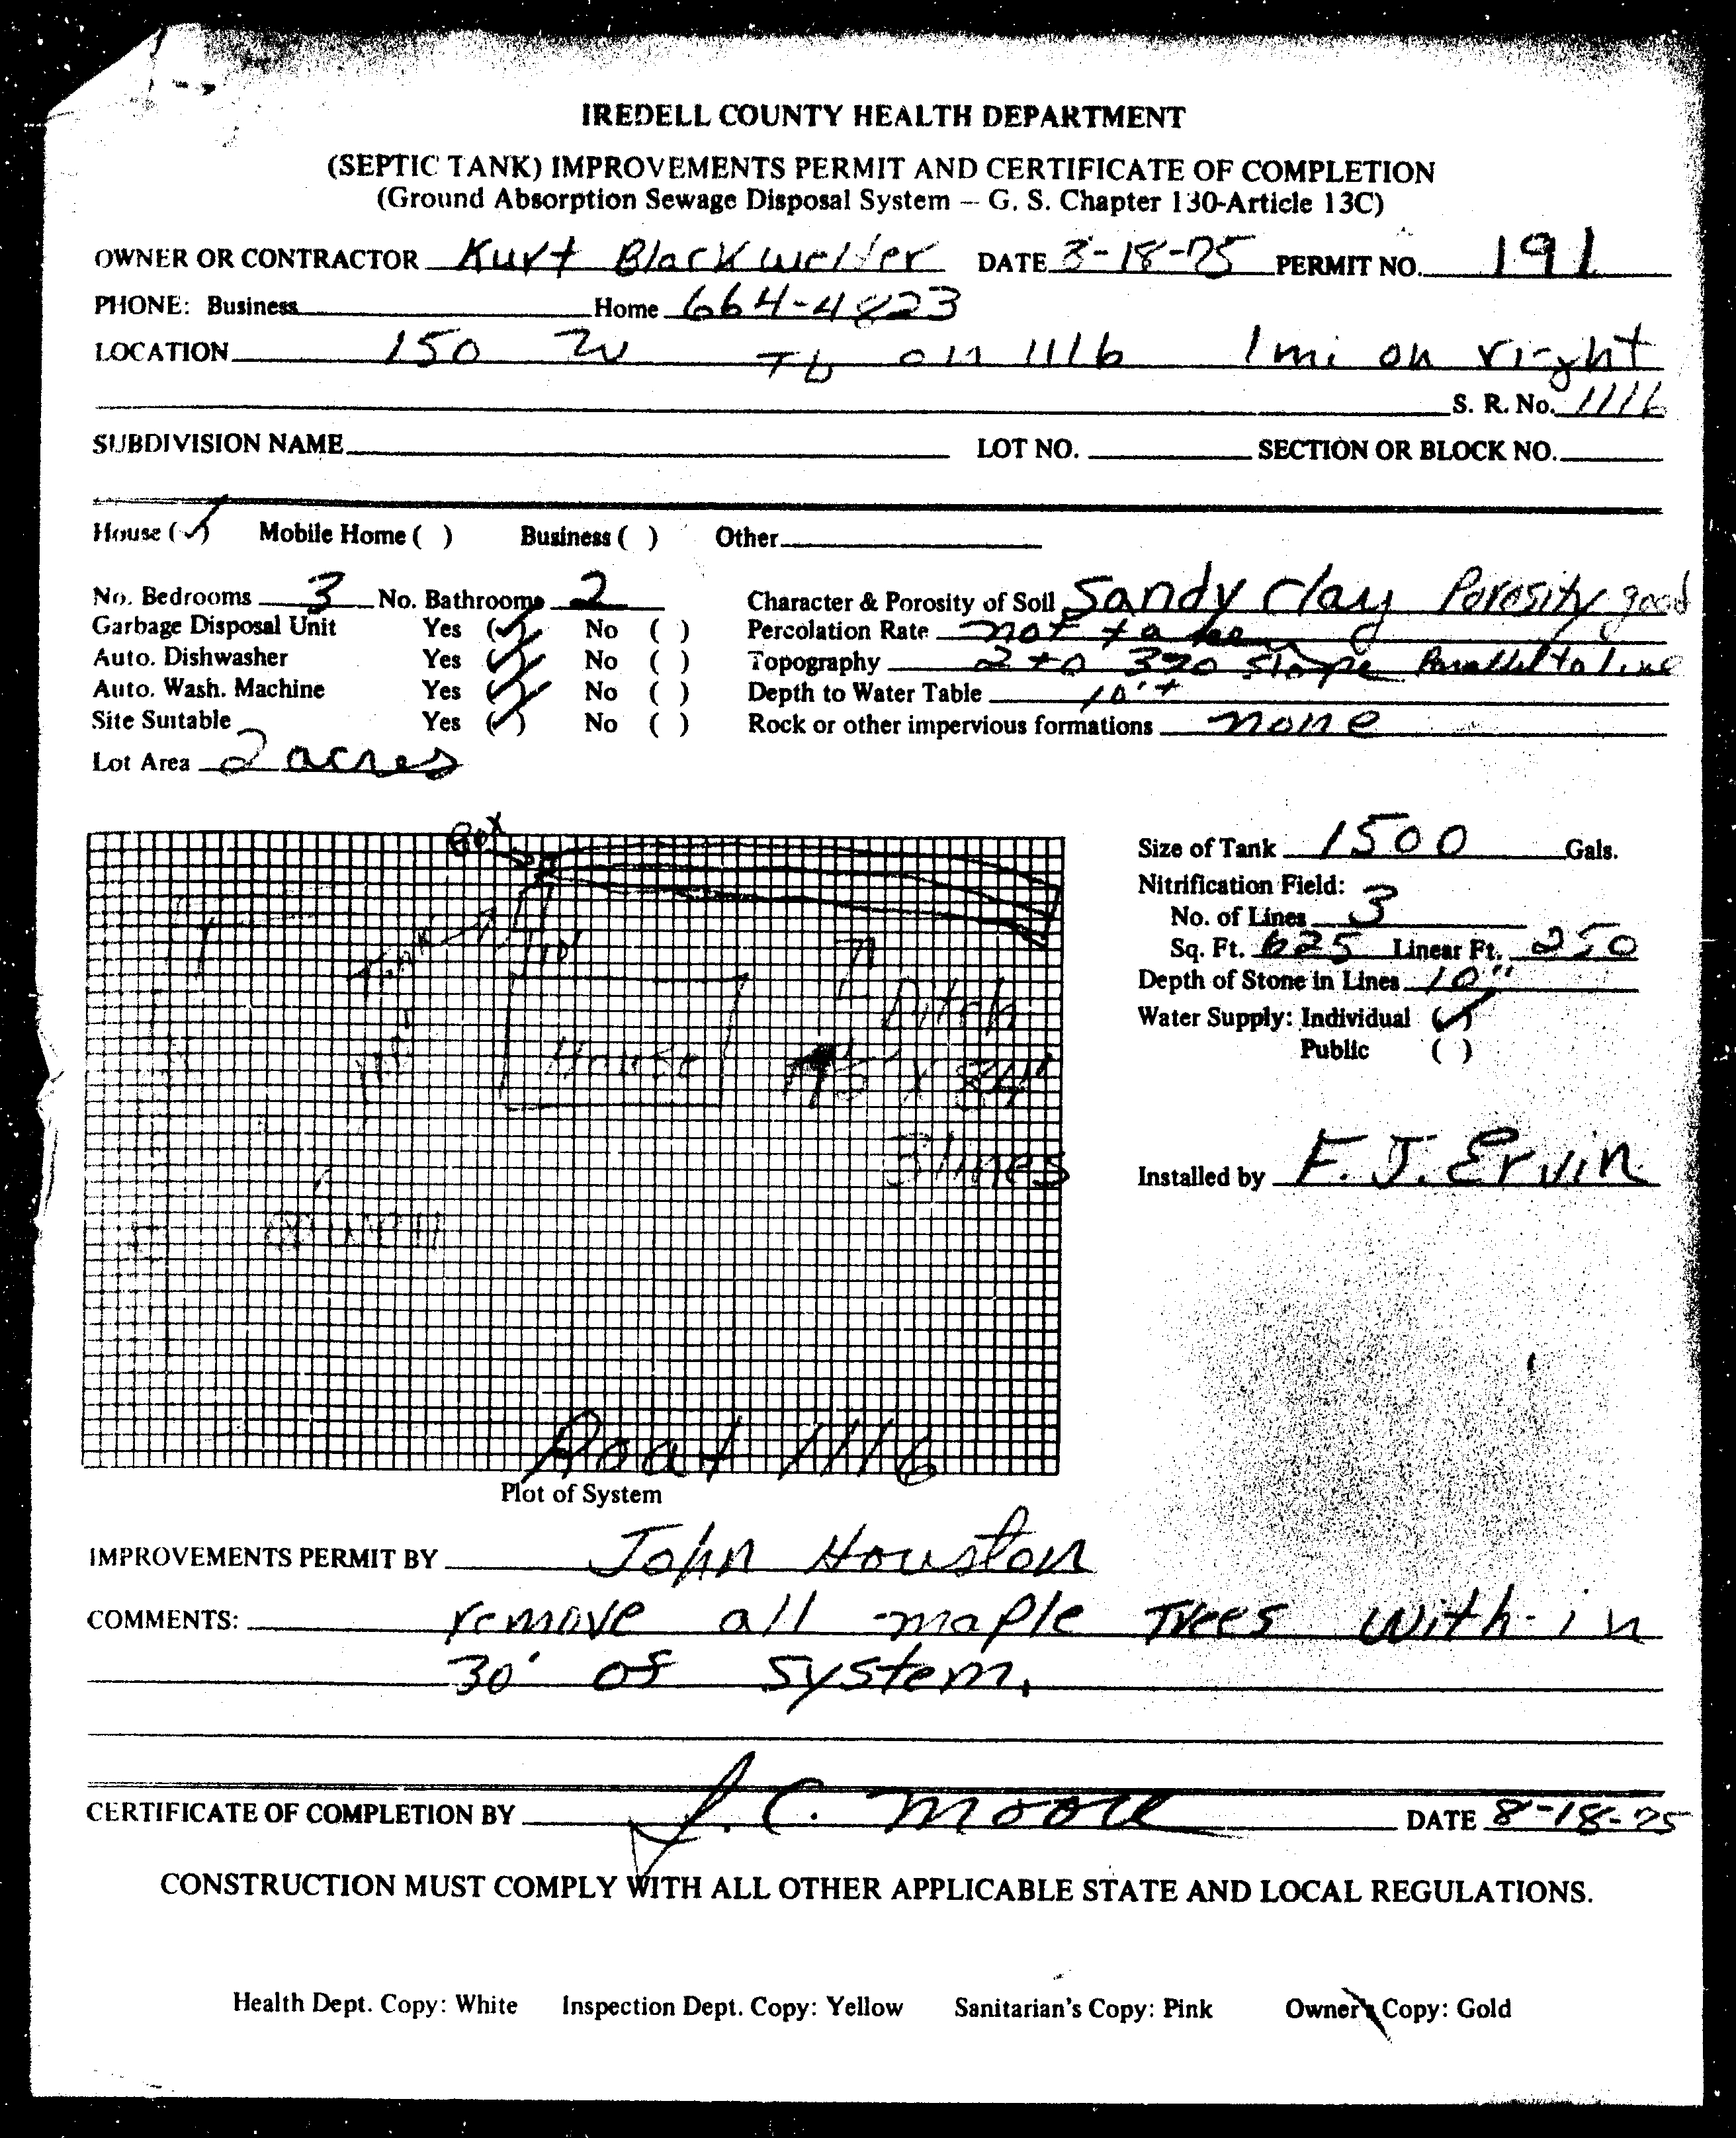 IREDELL COUNTY HEALTH DEPARTMENT
(SEPTIC TANK) IMPROVEMENTS PERMIT AND CERTIFICATE OF COMPLETION
(Ground Absorption Sewage Disposal System – G. S. Chapter 130-Article 13C)
OWNER OR CONTRACTOR Kurt Blackwelder DATE 3-18-75 PERMIT NO. 191
PHONE: Business Home 664-4823
LOCATION 150 W TL on 1116 1 mi on right
S. R. No. 1116
SUBDIVISION NAME LOT NO. SECTION OR BLOCK NO.
House (✓) Mobile Home ( ) Business ( ) Other
No. Bedrooms 3 No. Bathrooms 2 Character & Porosity of Soil Sandy clay Porosity good
Garbage Disposal Unit Yes (✓) No ( ) Percolation Rate not taken
Auto. Dishwasher Yes (✓) No ( ) Topography 2 to 3% slope Parallel to line
Auto. Wash. Machine Yes (✓) No ( ) Depth to Water Table 10'+
Site Suitable Yes (✓) No ( ) Rock or other impervious formations none
Lot Area 2 acres
Box
Size of Tank 1500 Gals.
Nitrification Field:
No. of Lines 3
Sq. Ft. 625 Linear Ft. 250
Depth of Stone in Lines 10"
Water Supply: Individual (✓)
Public ( )
Tank
10'
Ditch
House
84'
3 lines
Installed by F. J. Ervin
Road 1116
Plot of System
IMPROVEMENTS PERMIT BY John Houston
COMMENTS: remove all maple Trees with-in
30' of system.
CERTIFICATE OF COMPLETION BY J. C. Moore DATE 8-18-75
CONSTRUCTION MUST COMPLY WITH ALL OTHER APPLICABLE STATE AND LOCAL REGULATIONS.
Health Dept. Copy: White Inspection Dept. Copy: Yellow Sanitarian's Copy: Pink Owner's Copy: Gold